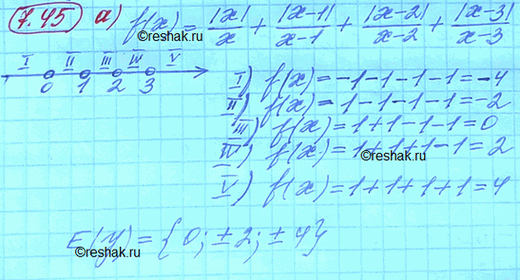 7.45 а) f(x) = |x|/x + |x-1|/x-1 + |x-2|/x-2 + |x-3|/x-3
I II III IV V
0 1 2 3
I) f(x)=-1-1-1-1=-4
II) f(x)=1-1-1-1=-2
III) f(x)=1+1-1-1=0
IV) f(x)=1+1+1-1=2
©reshak.ru
V) f(x)=1+1+1+1=4
E(y)={0; ±2; ±4}
©reshak.ru